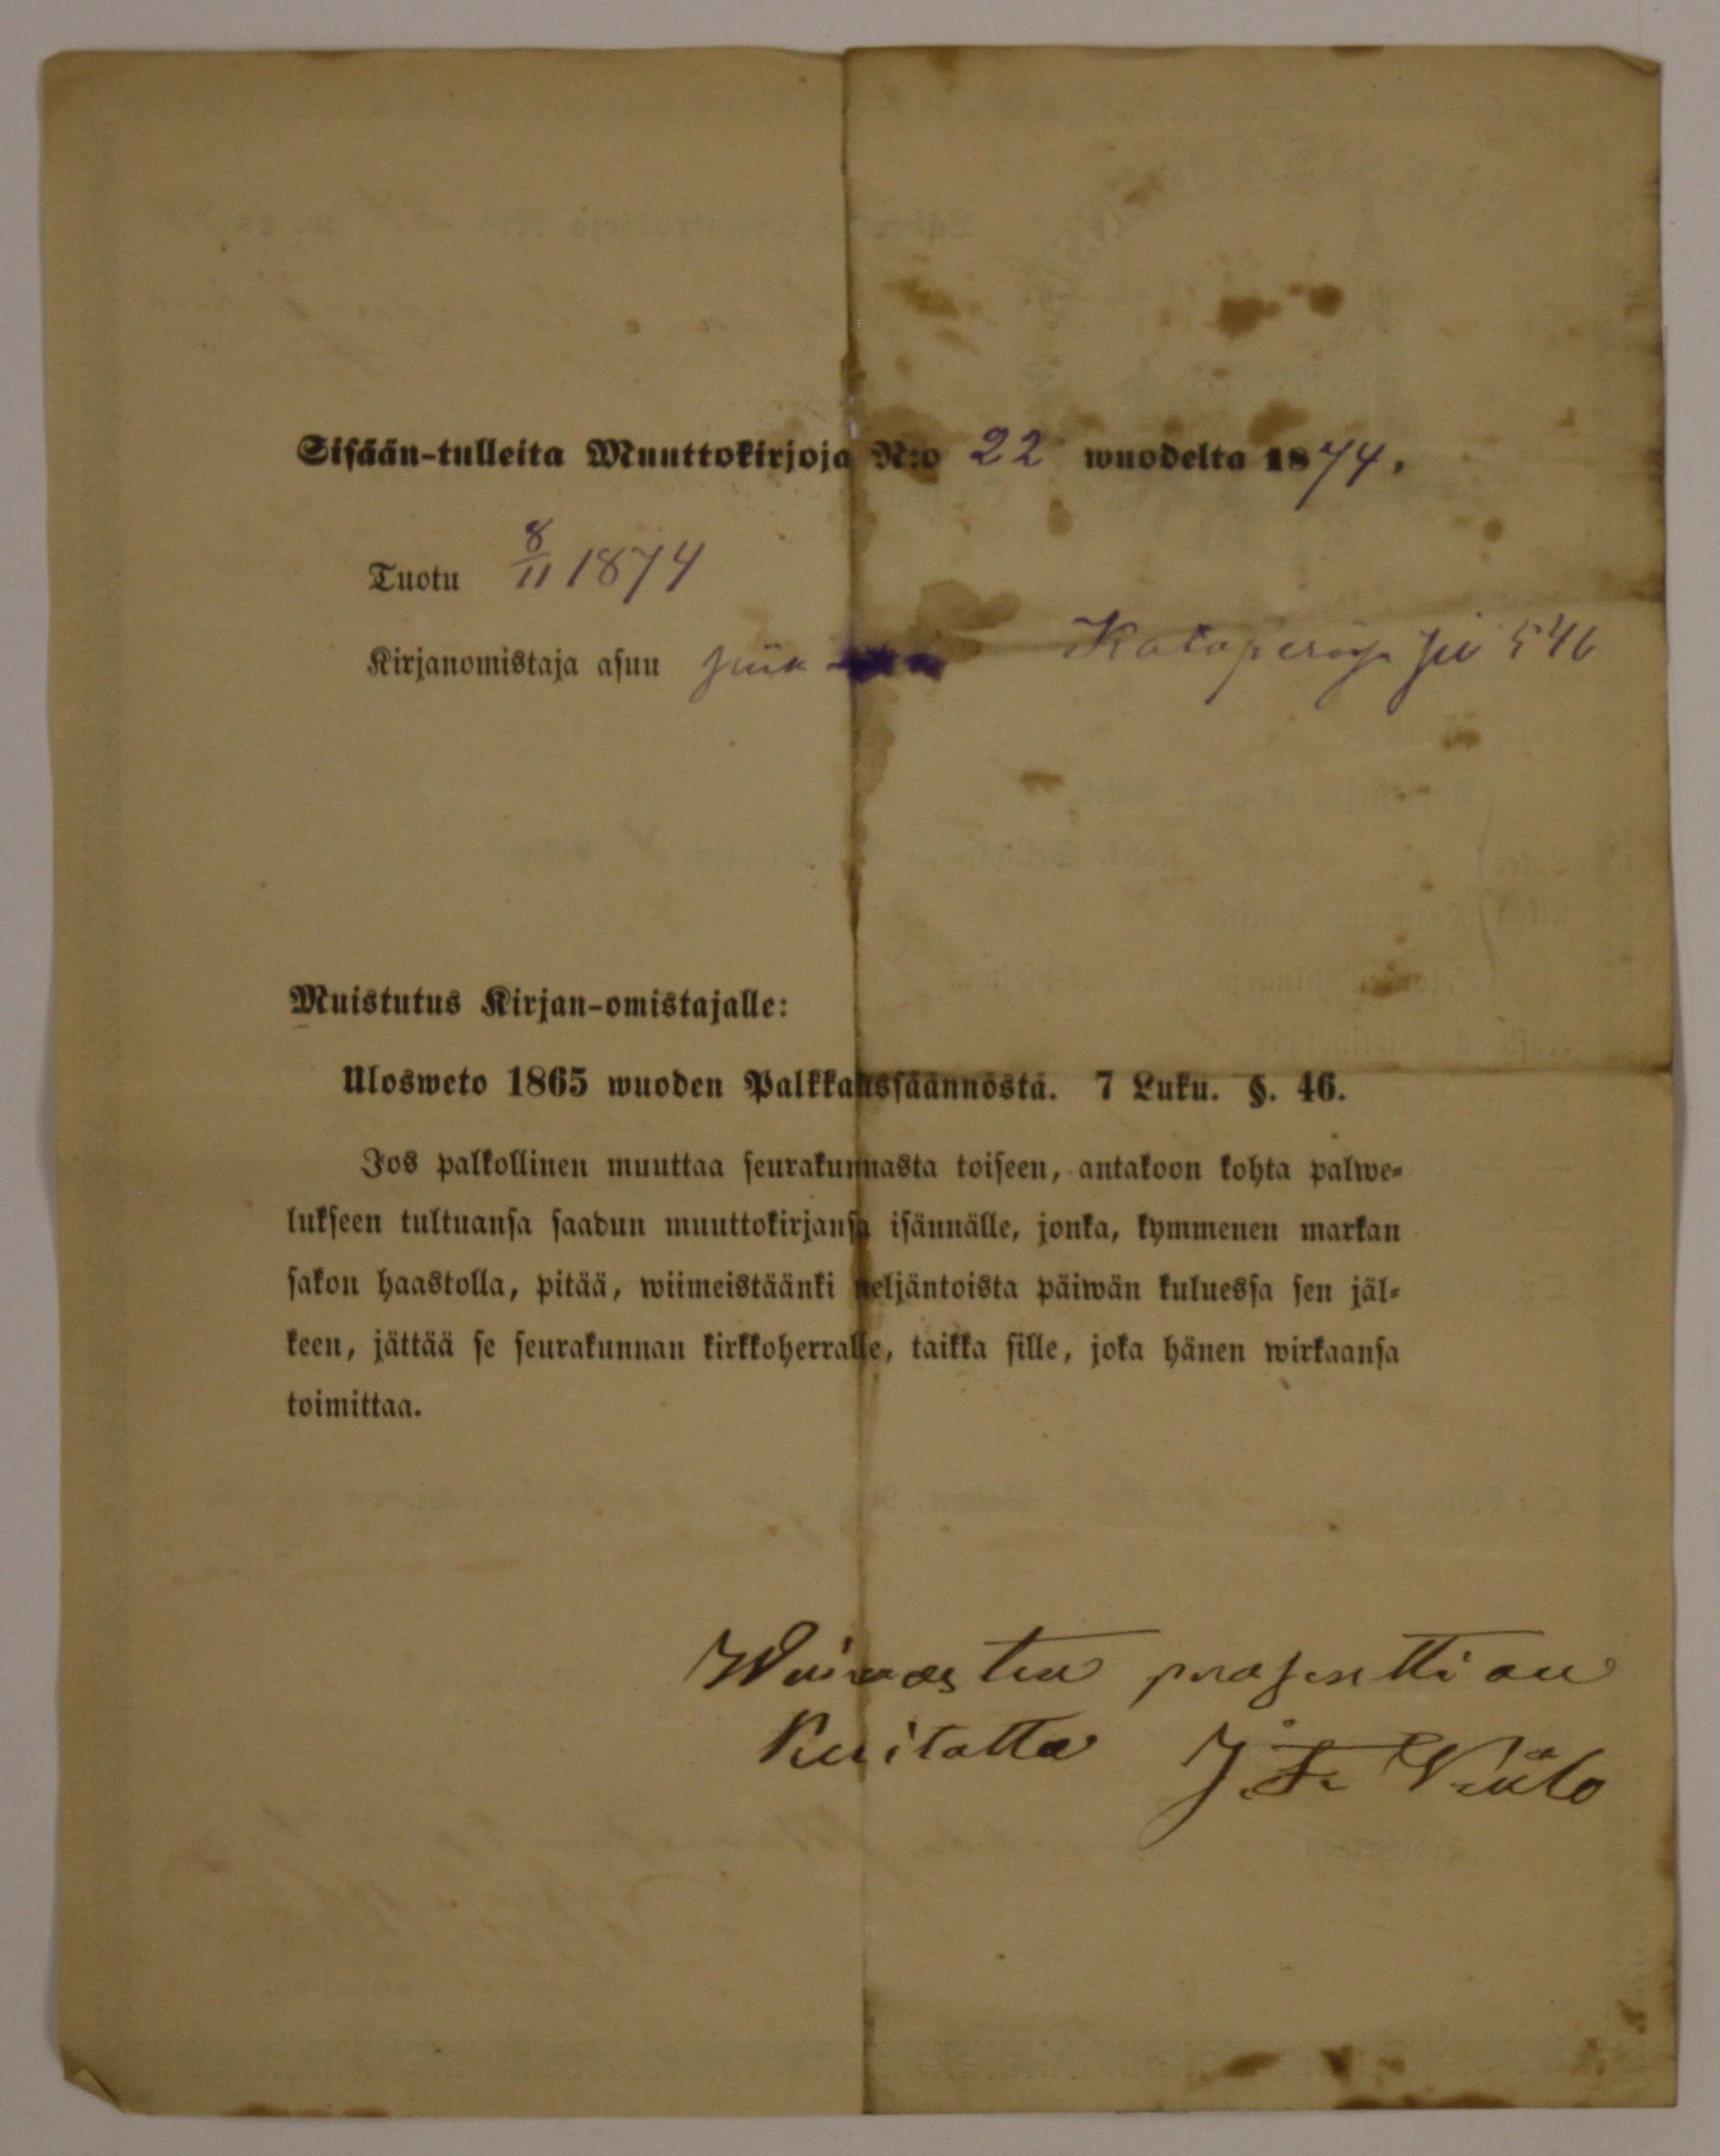 Sisään-tulleita Muuttokirjoja N:o 22 wuodelta 1874.
Tuotu 8/11 1874
Kirjanomistaja asuu 546
Muistutus Kirjan-omistajalle:
Ulosweto 1865 wuoden Palkkaussäännöstä. 7 Luku. §. 46.
Jos palkollinen muuttaa seurakunnasta toiseen, antakoon kohta palwe-
lukseen tultuansa saadun muuttokirjansa isännälle, jonka, kymmenen markan
sakon haastolla, pitää, wiimeistäänki neljäntoista päiwän kuluessa sen jäl-
keen, jättää se seurakunnan kirkkoherralle, taikka sille, joka hänen wirkaansa
toimittaa.
Kuitattu J. F.